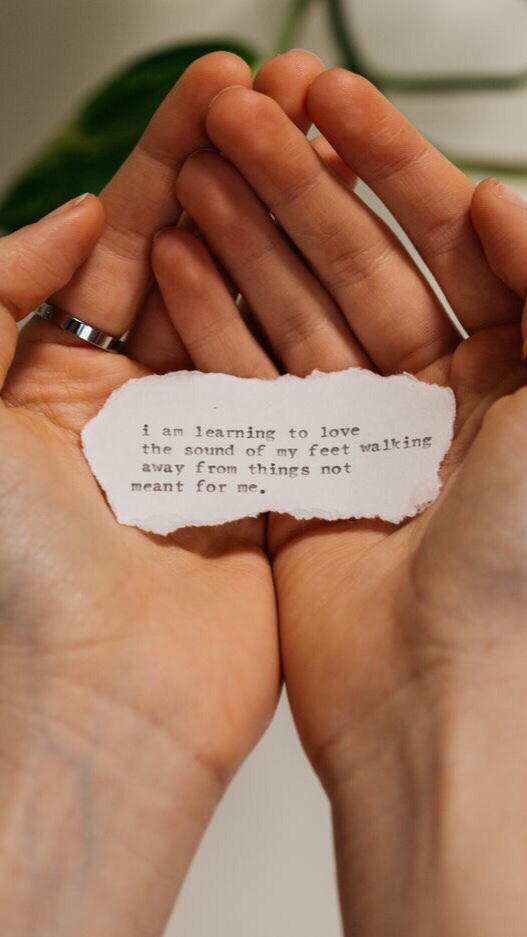 i am learning to love
the sound of my feet walking
away from things not
meant for me.